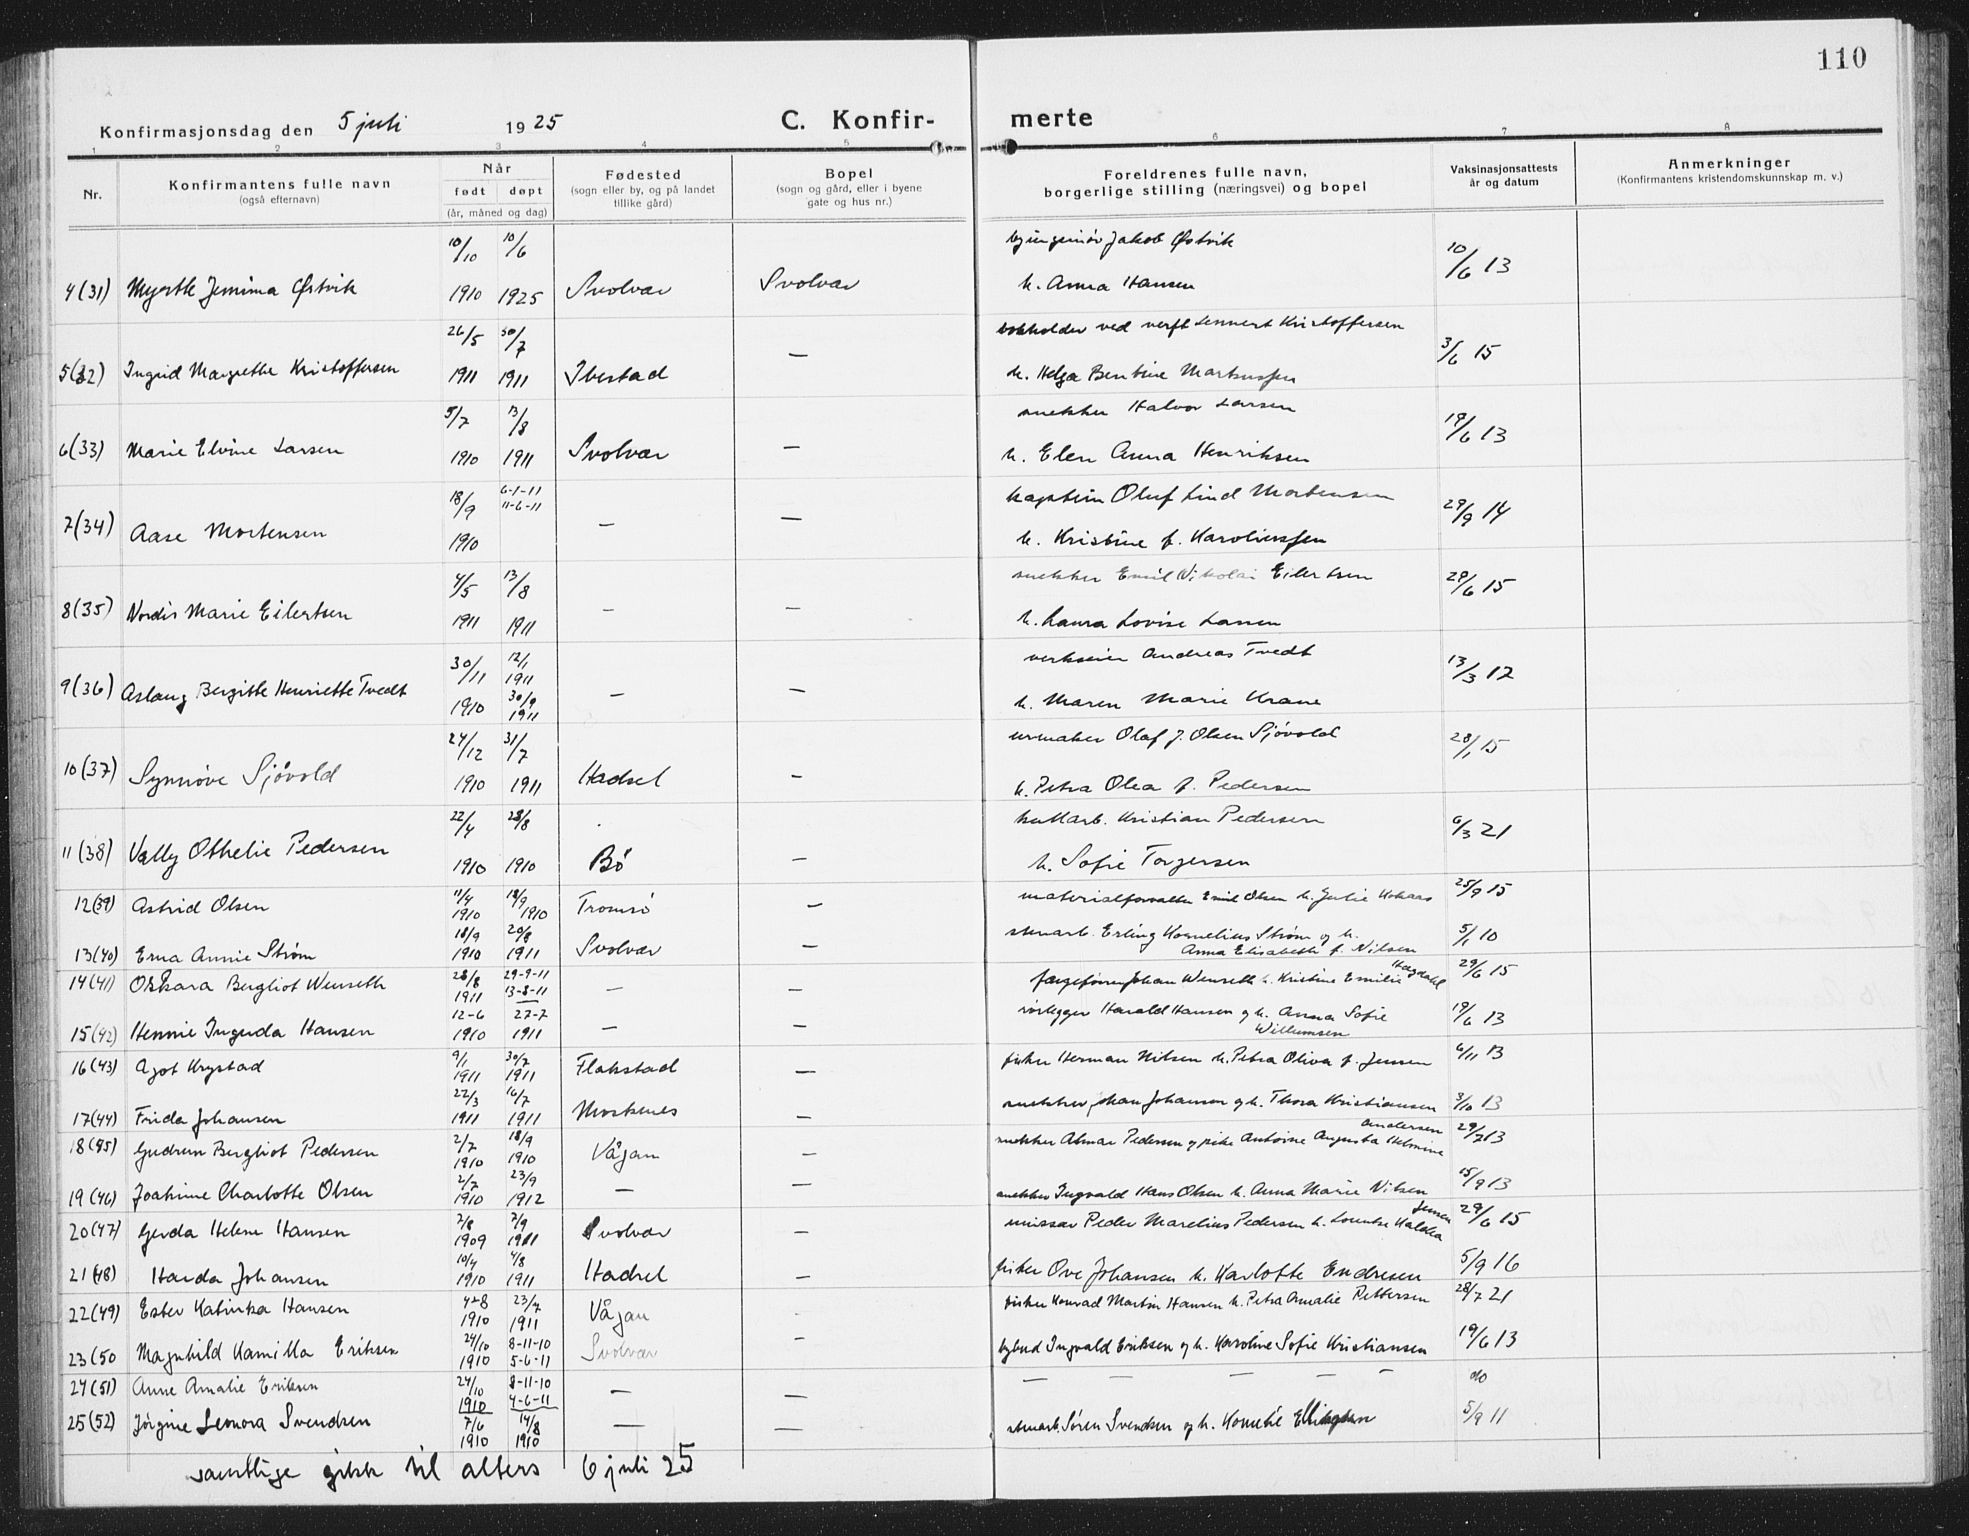 110
Konfirmasjonsdag den 5 juli 1925 C. Konfir- merte
1 2 3 4 5 6 7 8
Nr. Konfirmantens fulle navn (også efternavn) Når født døpt (år, måned og dag) Fødested (sogn eller by, og på landet tillike gård) Bopel (sogn og gård, eller i byene gate og hus nr.) Foreldrenes fulle navn, borgerlige stilling (næringsvei) og bopel Vaksinasjonsattests år og datum Anmerkninger (Konfirmantens kristendomskunnskap m. v.)
4(31) Myrtle Jemima Østvik 10/10 1910 10/6 1925 Svolvær Svolvær Jakob Østvik h. Anna Hansen 10/6 13
5(32) Ingrid Margrethe Kristoffersen 26/5 1911 30/7 1911 Ibestad — bokholder ved verft Lennert Kristoffersen h. Helga Bentine Markussen 3/6 15
6(33) Marie Elvine Larsen 5/7 1910 13/8 1911 Svolvær — snekker Halvor Larsen h. Elen Anna Henriksen 19/6 13
7(34) Aase Mortensen 18/9 1910 6-1-11 11-6-11 — — kaptein Oluf Lind Mortensen h. Kristine f. Karoliussen 29/9 14
8(35) Nordis Marie Eilertsen 4/5 1911 13/8 1911 — — snekker Emil Nikolai Eilertsen h. Laura Lovise Larsen 29/6 15
9(36) Aslaug Bergitte Henriette Tvedt 30/11 1910 12/1 1911 30/9 1911 — — verkseier Andreas Tvedt h. Maren Marie Krane 13/3 12
10(37) Synnøve Sjøvold 24/12 1910 31/7 1911 Hadsel — urmaker Olaf J. Olsen Sjøvold h. Petra Olea f. Pedersen 28/1 15
11(38) Vally Othelie Pedersen 22/4 1910 28/8 1910 Bø — Kristian Pedersen h. Sofie Torgersen 6/3 21
12(39) Astrid Olsen 11/4 1910 18/9 1910 Tromsø — materialforvalter Emil Olsen h. Julie 25/9 15
13(40) Erna Annie Strøm 18/9 1910 20/8 1911 Svolvær — stenarb. Erling Kornelius Strøm og h. Anna Elisabeth f. Nilsen 5/1 10
14(41) Oskara Bergliot Wenseth 28/8 1911 29-9-11 13-8-11 — — Johan Wenseth h. Kristine Emilie Hagdahl 29/6 15
15(42) Hennie Inguda Hansen 12-6 1910 27-7 1911 — — rørlegger Harald Hansen og h. Anna Sofie Willumsen 19/6 13
16(43) Agot Krystad 9/1 1911 30/7 1911 Flakstad — fisker Herman Nilsen h. Petra Oliva f. Jensen 6/11 13
17(44) Frida Johansen 22/3 1911 16/7 1911 Moskenes — snekker Johan Johansen og h. Thora Kristiansen 3/10 13
18(45) Gudrun Bergliot Pedersen 2/7 1910 18/9 1910 Vågan — snekker Almar Pedersen og pike Antoine Augusta Helmine Andersen 29/7 13
19(46) Joakime Charlotte Olsen 2/7 1910 23/9 1912 — — snekker Ingvald Hans Olsen h. Anna Marie Nilsen 15/9 13
20(47) Gerda Helene Hansen 7/8 1909 7/9 1911 Svolvær — Peder Marelius Pedersen h. Lorentse Jensen 29/6 15
21(48) Harda Johansen 10/4 1910 4/8 1911 Hadsel — fisker Ove Johansen h. Karlotte Endresen 5/9 16
22(49) Ester Katinka Hansen 4-8 1910 23/7 1911 Vågan - fisker Konrad Martin Hansen h. Petra Amalie Pettersen 28/7 21
23(50 Magnhild Kamilla Eriksen 24/10 1910 8-11-10 5-6-11 Svolvær — bybud Ingvald Eriksen og h. Karoline Sofie Kristiansen 19/6 13
24(51) Anne Amalie Eriksen 24/10 1910 8-11-10 4-6-11 — — — — — — — do
25(52) Jørgine Leonora Svendsen 7/6 1910 14/8 1910 — — stenarb. Søren Svendsen og h. 5/9 11
samtlige gikk til alters 6 juli 25